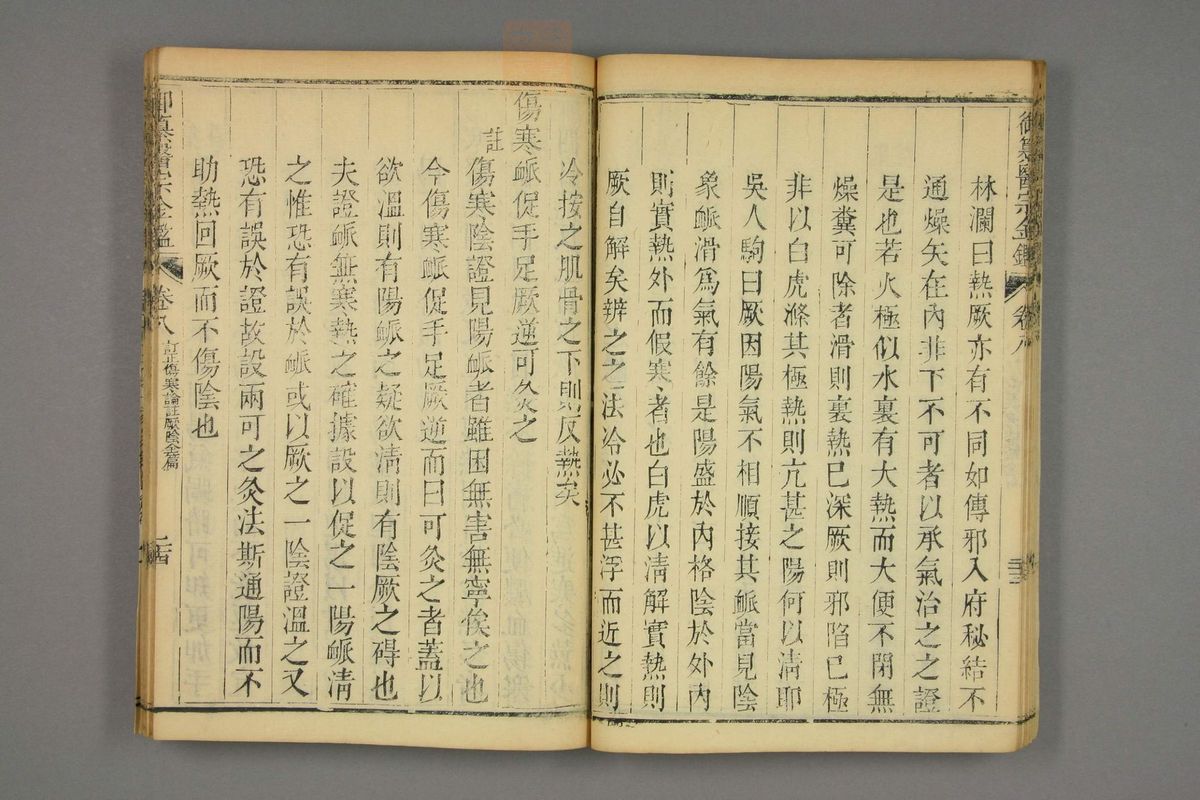 御纂醫宗金鑑 卷八 二十三
林瀾曰熱厥亦有不同如傳邪入府秘結不
通燥矢在內非下不可者以承氣治之之證
是也若火極似水裏有大熱而大便不閉無
燥糞可除者滑則裏熱已深厥則邪陷已極
非以白虎滌其極熱則亢甚之陽何以清耶
吳人駒曰厥因陽氣不相順接其脈當見陰
象脈滑爲氣有餘是陽盛於內格陰於外內
則實熱外而假寒者也白虎以清解實熱則
厥自解矣辨之之法冷必不甚浮而近之則
冷按之肌骨之下則反熱矣
傷寒脈促手足厥逆可灸之
註 傷寒陰證見陽脈者雖困無害無寧俟之也
今傷寒脈促手足厥逆而曰可灸之者蓋以
欲溫則有陽脈之疑欲清則有陰厥之碍也
夫證脈無寒熱之確據設以促之一陽脈清
之惟恐有誤於脈或以厥之一陰證溫之又
恐有誤於證故設兩可之灸法斯通陽而不
助熱回厥而不傷陰也
御纂醫宗金鑑 卷八 訂正傷寒論註厥陰全篇 二十四